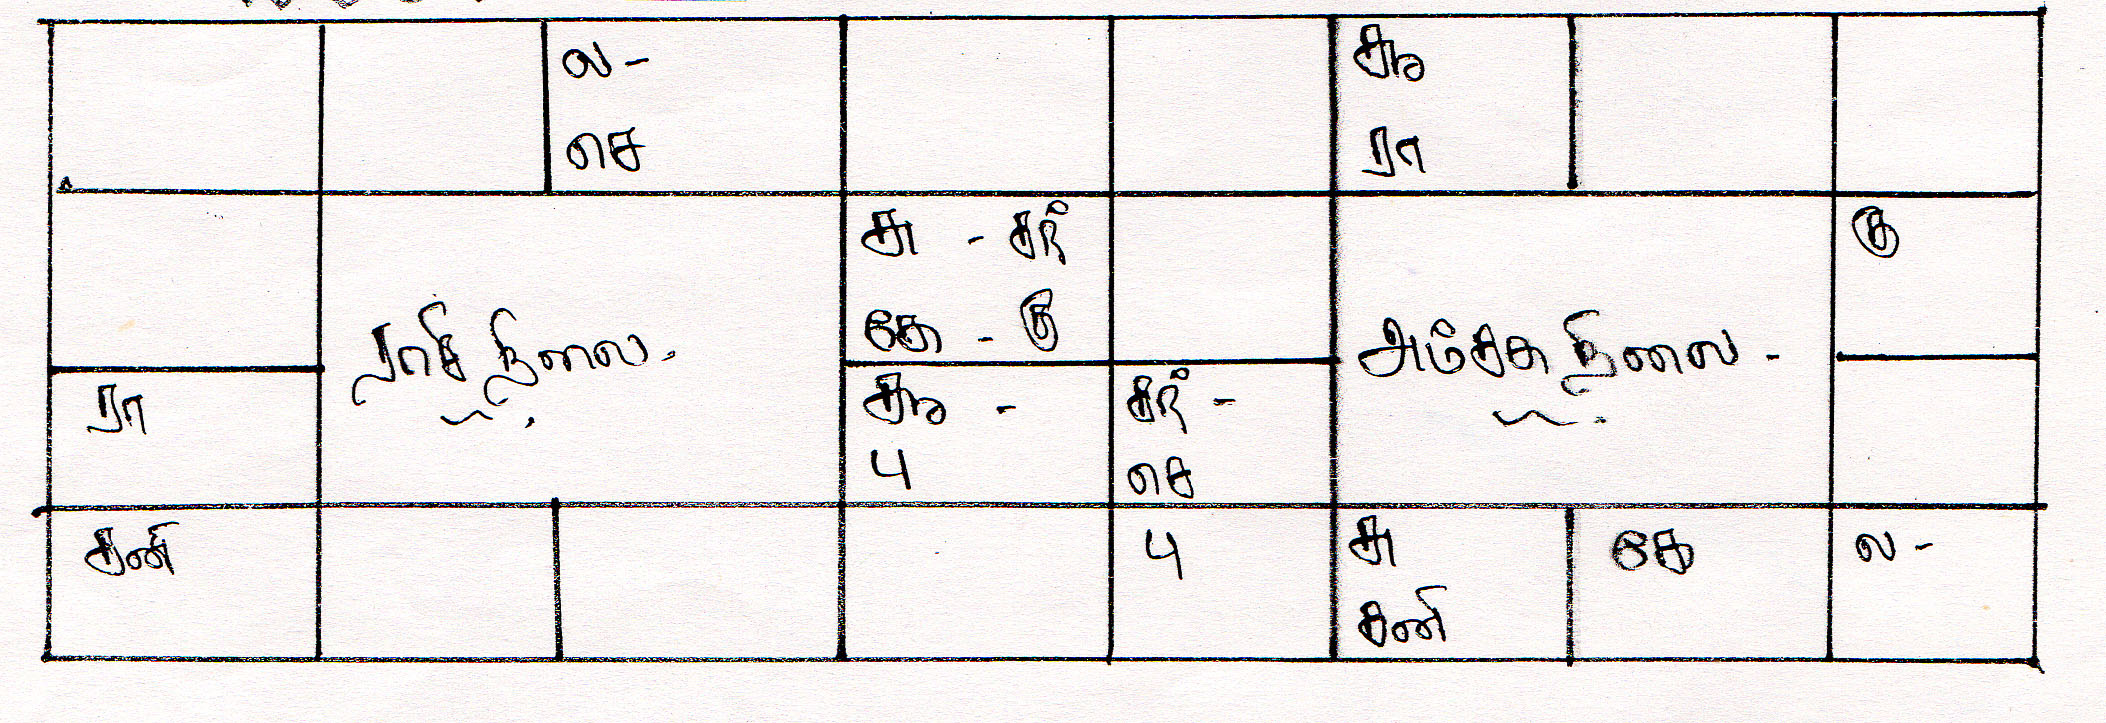 ல -
செ
சூ
ரா
சு - சந்
கே - கு
கு
ராசி நிலை -
அம்சக நிலை -
ரா
சூ -
பு
சந் -
செ
சனி
பு
சு
சனி
கே
ல -